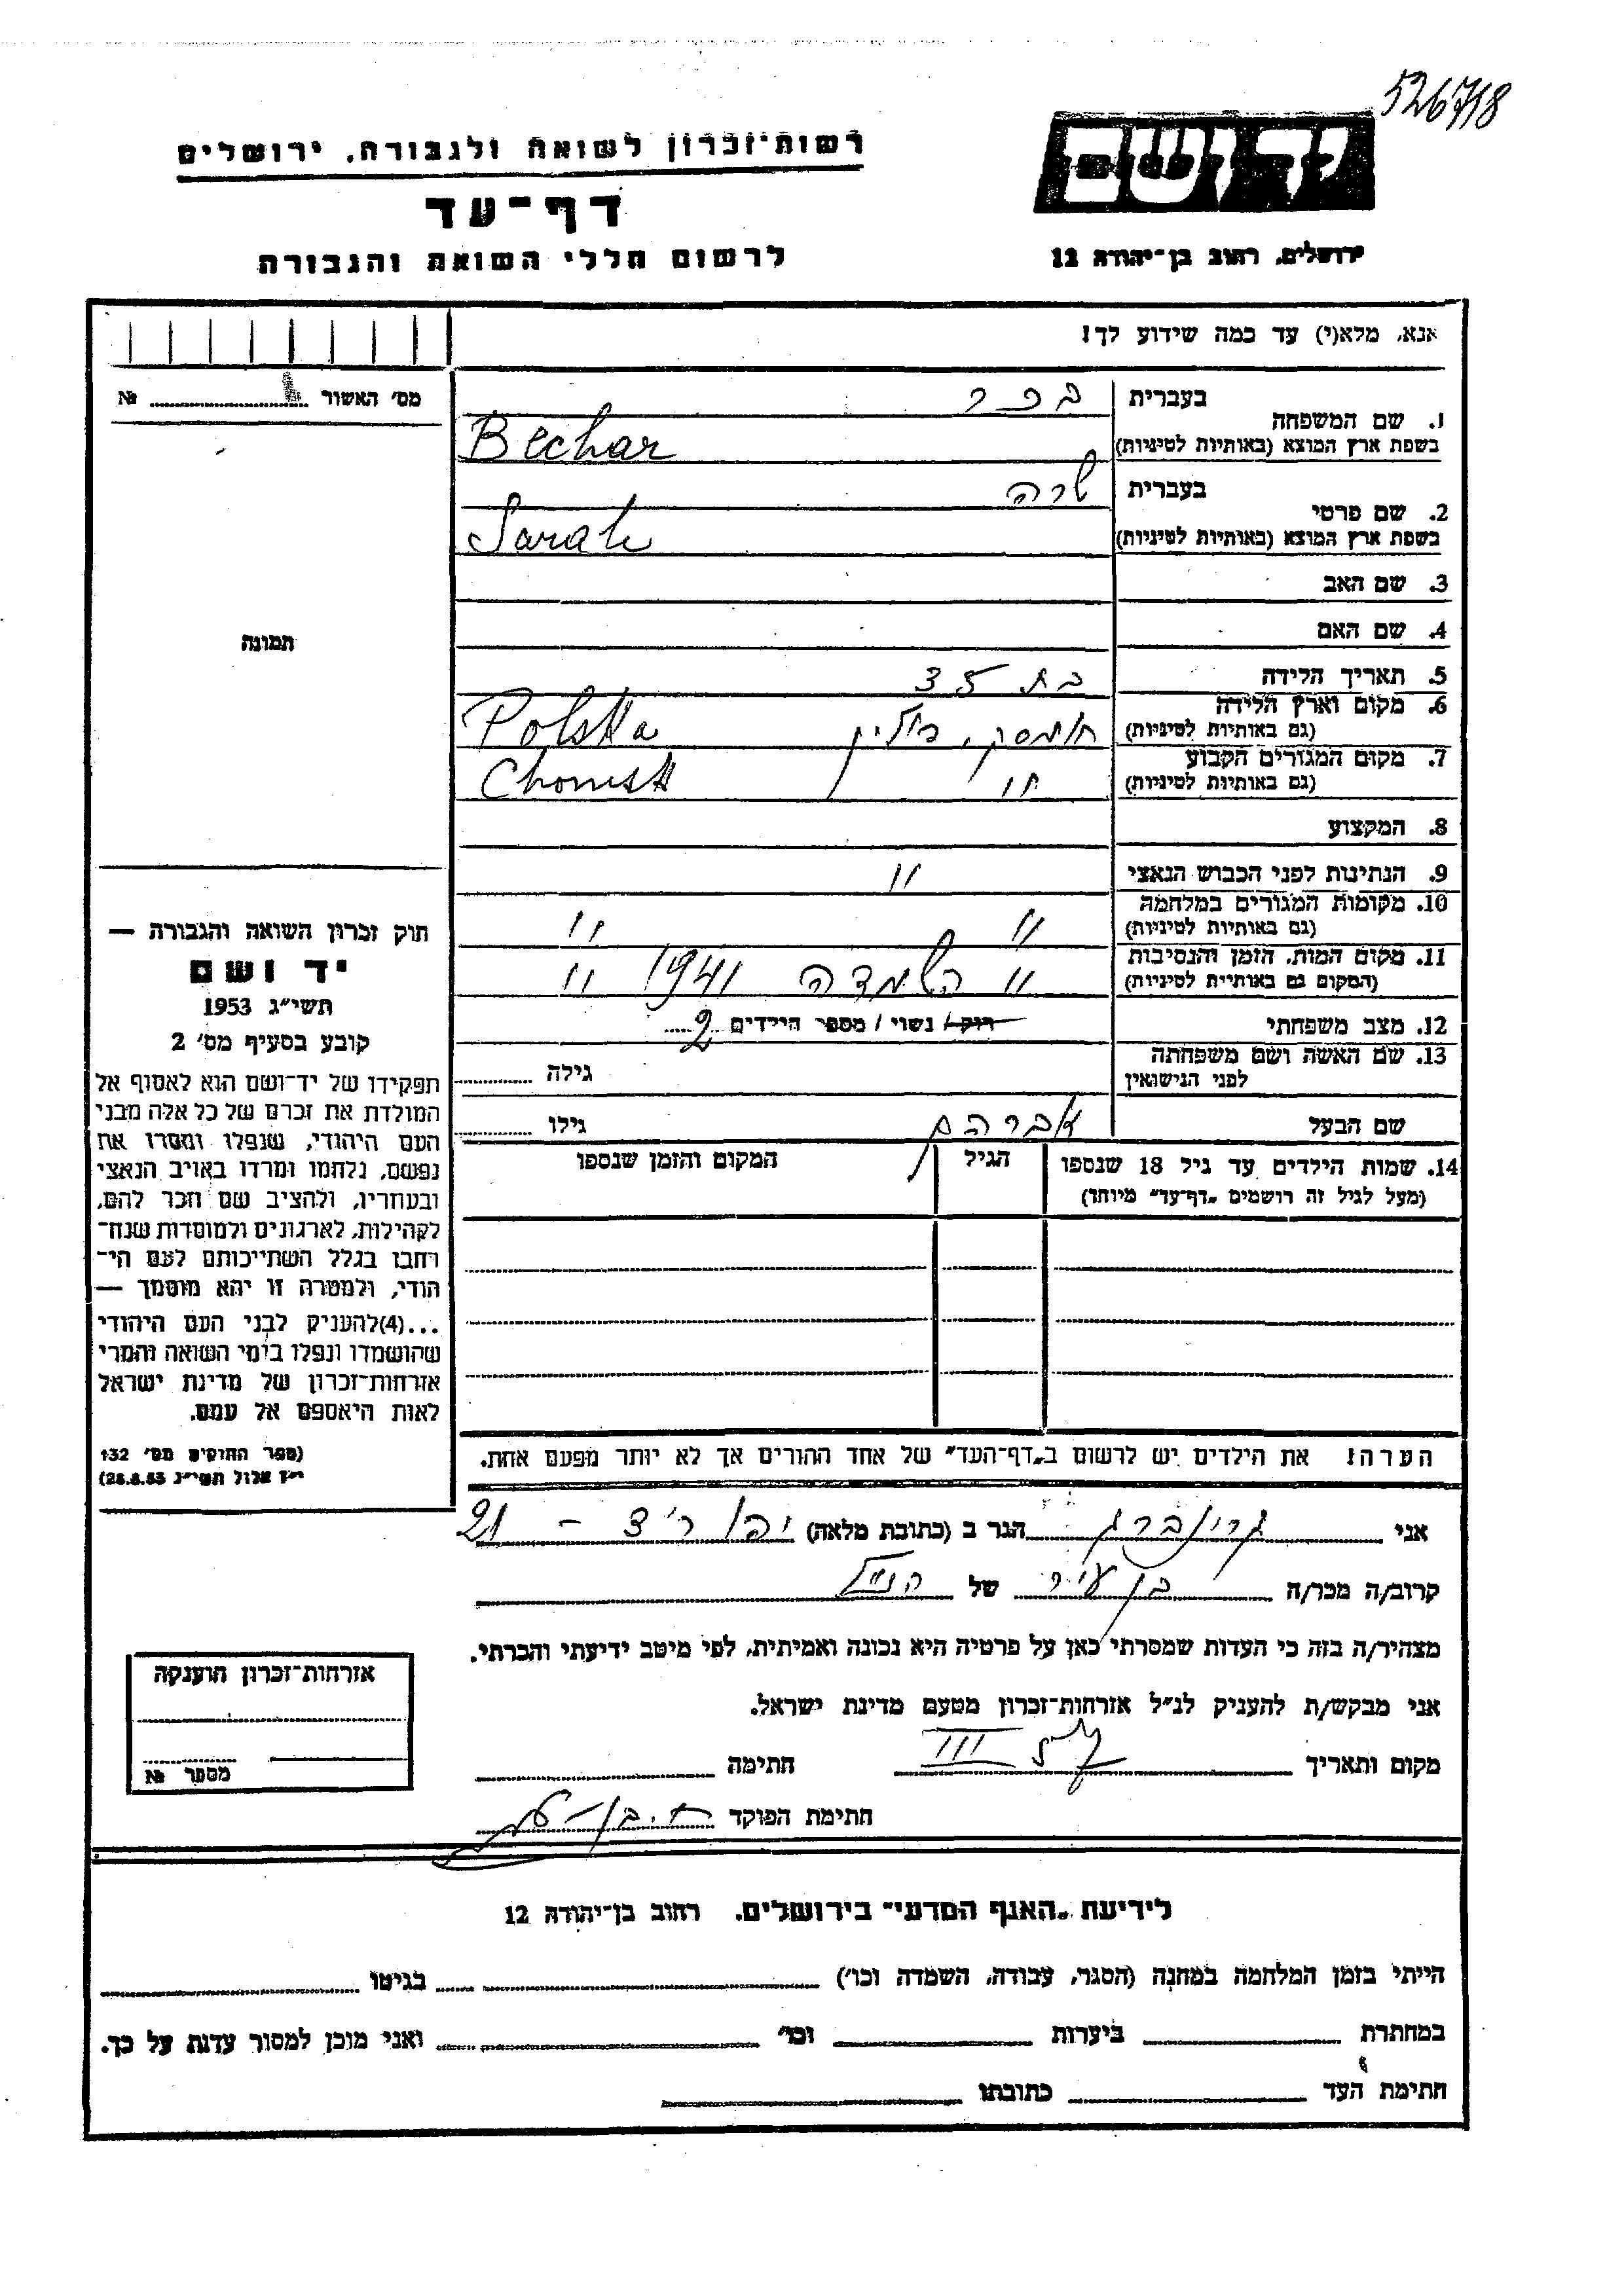 526718
יד ושם
ירושלים, רחוב בן־יהודה 12
רשות־זכרון לשואה ולגבורה, ירושלים
דף־עד
לרשום חללי השואה והגבורה
אנא, מלא(י) עד כמה שידוע לך!
מס' האשור № 
תמונה
1. שם המשפחה בעברית בכר
בשפת ארץ המוצא (באותיות לטיניות) Bechar
2. שם פרטי בעברית שרה
בשפת ארץ המוצא (באותיות לטיניות) Sarah
3. שם האב
4. שם האם
5. תאריך הלידה בת 35
6. מקום וארץ הלידה
(גם באותיות לטיניות) חומסק, פולין Polska
7. מקום המגורים הקבוע
(גם באותיות לטיניות) " Chomsk
8. המקצוע
9. הנתינות לפני הכבוש הנאצי "
10. מקומות המגורים במלחמה
(גם באותיות לטיניות) " "
11. מקום המות, הזמן והנסיבות
(המקום גם באותיית לטיניות) " השמדה 1941 "
12. מצב משפחתי רוק / נשוי / מספר הילדים 2
13. שם האשה ושם משפחתה
לפני הנישואין גילה
שם הבעל אברהם גילו
14. שמות הילדים עד גיל 18 שנספו הגיל המקום והזמן שנספו
(מעל לגיל זה רושמים „דף־עד" מיוחד)
הערה! את הילדים יש לרשום ב„דף־העד" של אחד ההורים אך לא יותר מפעם אחת.
חוק זכרון השואה והגבורה —
יד ושם
תשי"ג 1953
קובע בסעיף מס' 2
תפקידו של יד־ושם הוא לאסוף אל
המולדת את זכרם של כל אלה מבני
העם היהודי, שנפלו ומסרו את
נפשם, נלחמו ומרדו באויב הנאצי
ובעוזריו, ולהציב שם וזכר להם,
לקהילות, לארגונים ולמוסדות שנח־
רחבו בגלל השתייכותם לעם הי־
הודי, ולמטרה זו יהא מוסמך —
...(4)להעניק לבני העם היהודי
שהושמדו ונפלו בימי השואה והמרי
אזרחות־זכרון של מדינת ישראל
לאות היאספם אל עמם.
(ספר החוקים מס' 132
י"ז אלול תשי"ג 28.8.53)
אני גרינברג הגר ב (כתובת מלאה) יפו 21 –
קרוב/ה מכר/ה בן עיר של הנ"ל
מצהיר/ה בזה כי העדות שמסרתי כאן על פרטיה היא נכונה ואמיתית, לפי מיטב ידיעתי והכרתי.
אני מבקש/ת להעניק לנ"ל אזרחות־זכרון מטעם מדינת ישראל.
מקום ותאריך III חתימה
חתימת הפוקד
אזרחות־זכרון הוענקה
מספר №
לידיעת „האגף המדעי" בירושלים, רחוב בן־יהודה 12
הייתי בזמן המלחמה במחנה (הסגר, עבודה, השמדה וכו') בגיטו
במחתרת ביערות וכו' ואני מוכן למסור עדות על כך.
חתימת העד כתובתו